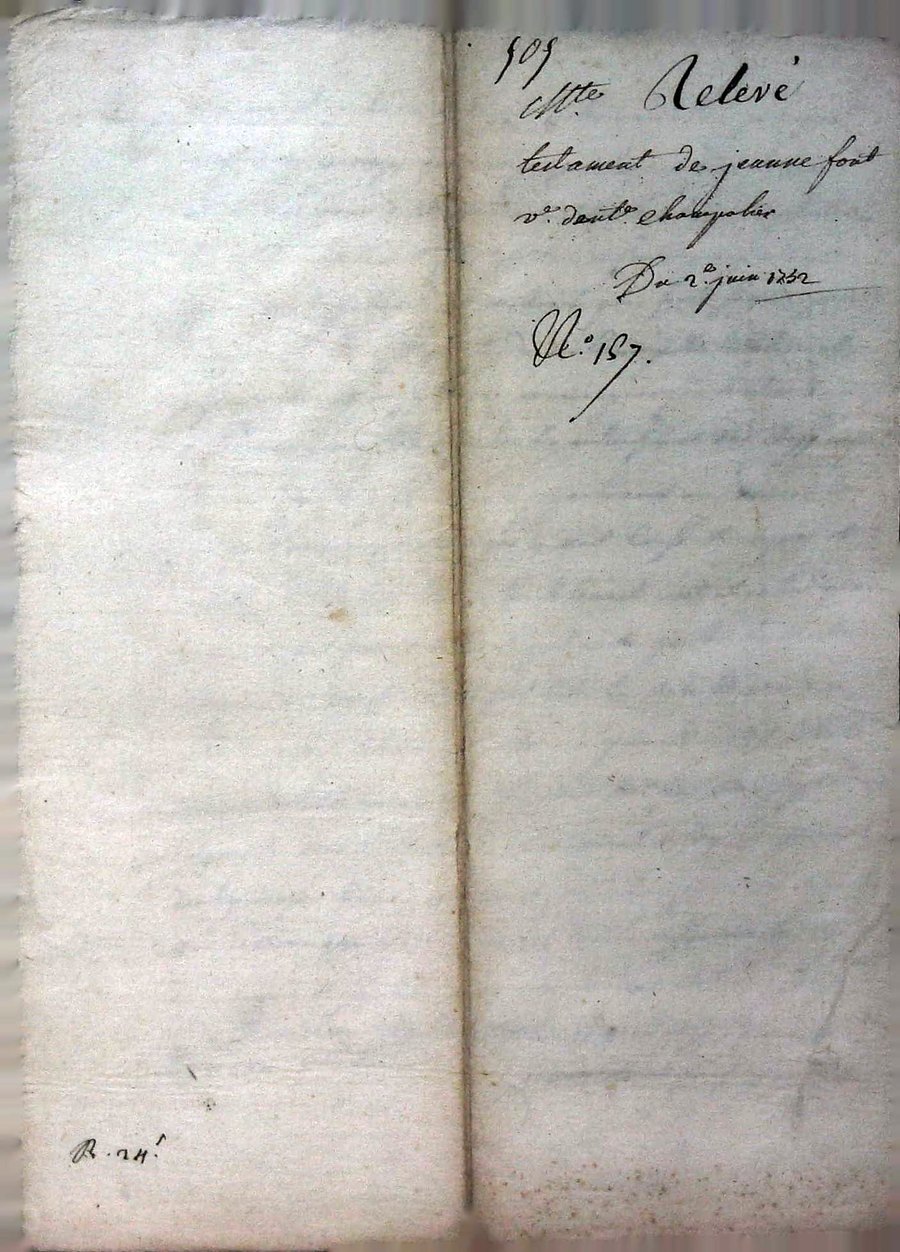 505
Relevé
testament de jeanne font
v.e dant.e champalier
Du 2.e juin 1752
N.o 157.
R. 24.s